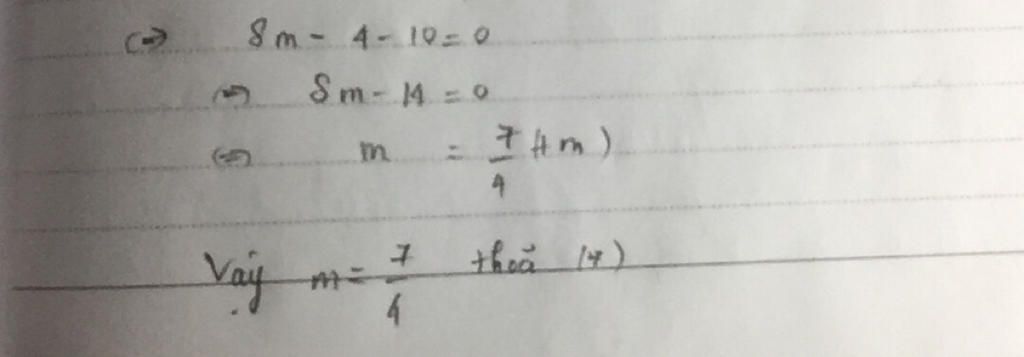 <=> 8m - 4 - 10 = 0
<=> 8m - 14 = 0
<=> m = 7/4 (tm)
Vậy m = 7/4 thoả (*)